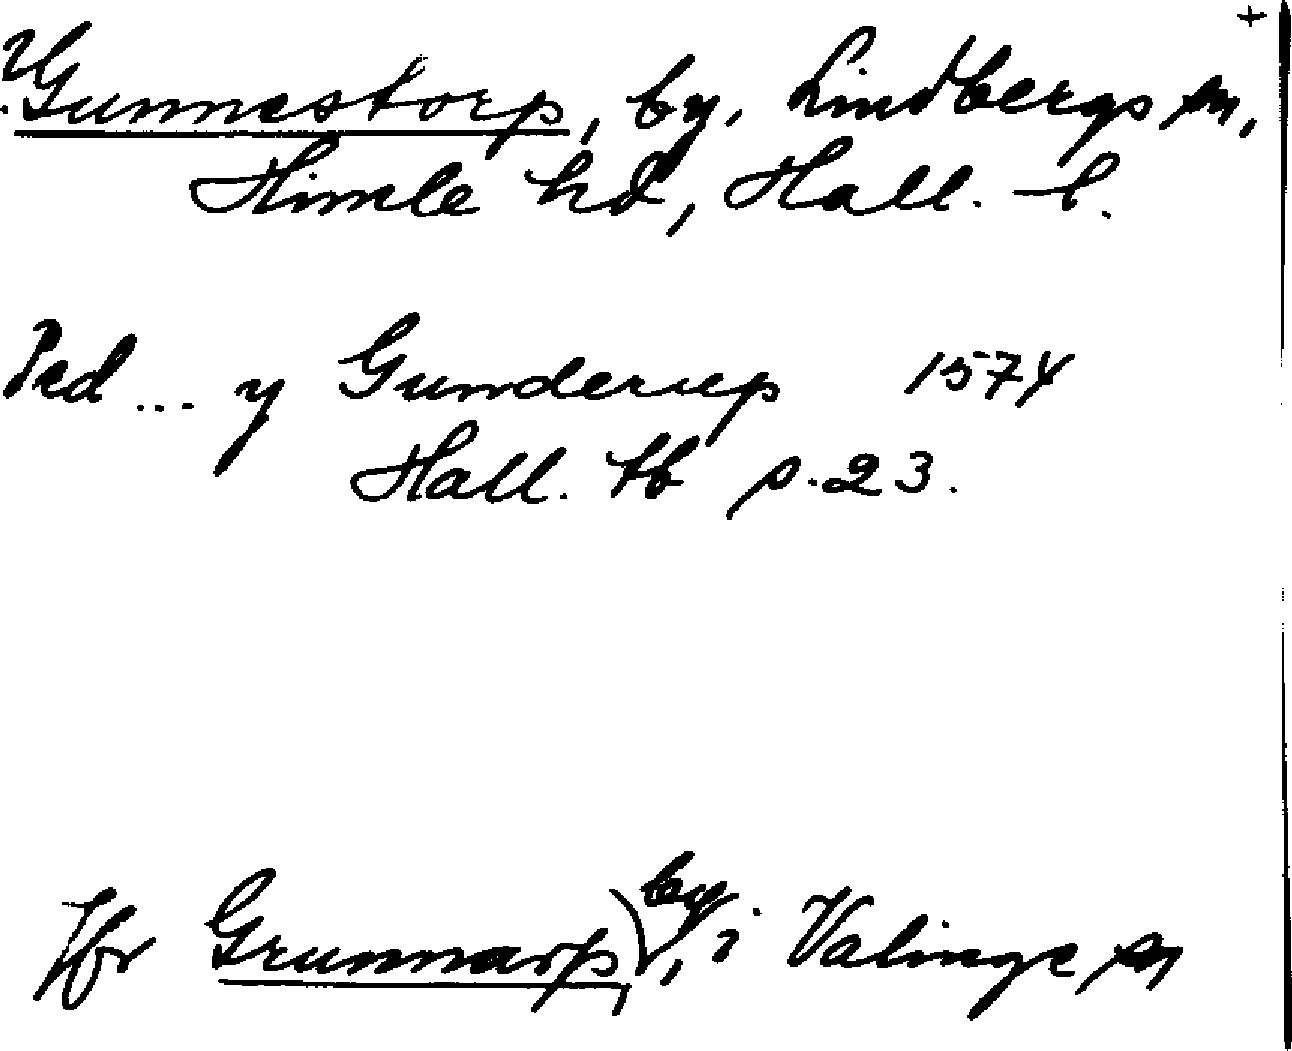 +
Gunnestorp, by, Lindbergs sn,
Himle hd, Hall. l.
Ped ... y Gunderup 1574
Hall. tb p. 23.
Jfr Grunnarp, by, i Valinge sn